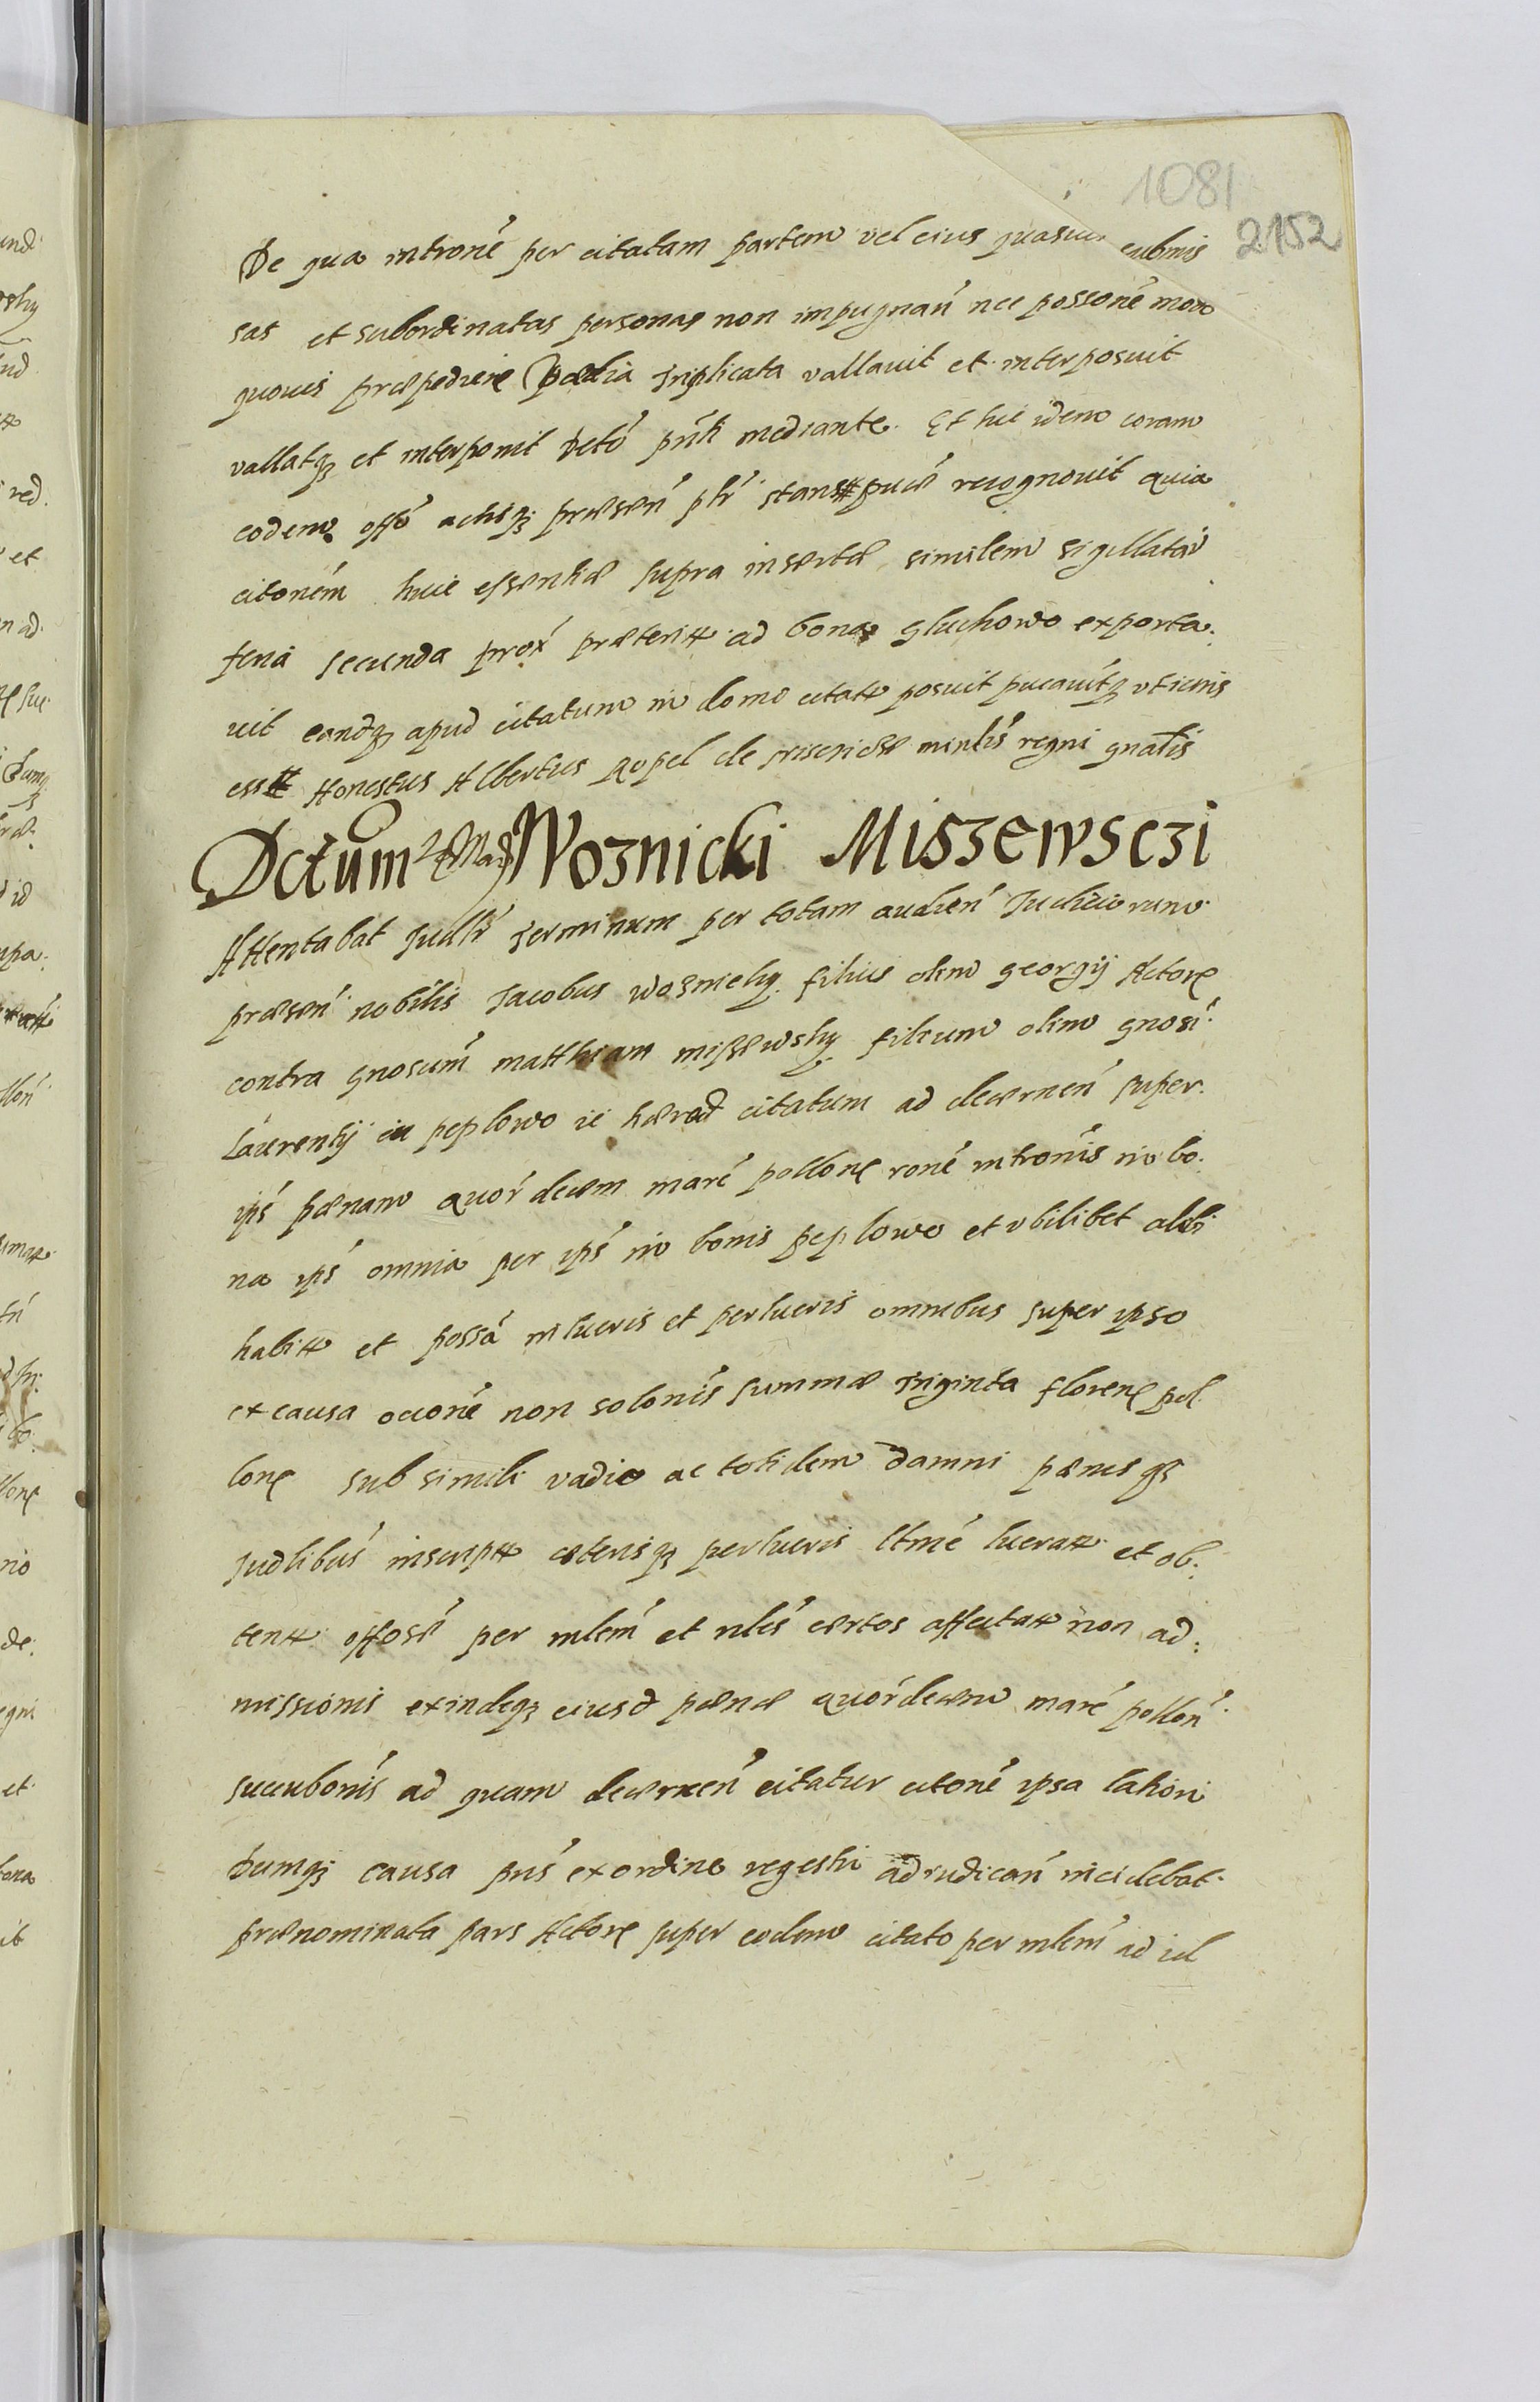 1081
2152
De qua intronė per citatam partem vel eius submis
sas et subordinatas personas non impugnan̄ nec possonė modo
quovis præpediere vadia triplicata vallavit et interposuit
vallatq3 et interponit Detō pn̄ti mediante. Et hic idem coram
eodem offō actisq3 præsen̄ stans recognovit quia
citonėm huic essentiæ supra insertæ similem sigillatā
feria secunda prox̄ præteritt ad bona Gluchowo exporta.
vit eandq3 apud citatum in domo citatt posuit pucavitq3 vt ieiunis
esstt Honestus Albertus Ropel de minlis regni gnalis
Dctum Woznicki Miszewsczi
Attentabat Judłr̄ Terminum per totam audien̄ Judiciorum
præsen̄ nobilis Jacobus Woznichy filius olim Georgij Actore
contra gnosum̄ Matthiam Miszewsky filium olim gnosi
Laurentij in Peplowo ic hæred citatum ad decernen̄ super
ips̄ pænam quor̄ decem marć pollone ronė intronis in bo.
na ips̄ omnia per ips̄ in bonis Peplowo et vbilibet alibi
habitt et possā inlucris et perlucris omnibus super ipso
ex causa occonė non solonis summæ triginta florene pol
lone sub simili vadio ac totidem damni pænis q3
Judlibus̄ inscriptt cæterisq3 perlucris ltmė lucratt et ob.
tentt offosē per mlem̄ et nles̄ certos affectatt non ad:
missionis exindeq3 eiusd pænæ quor̄decem marć pollon̄
succubonis̄ ad quam decernen̄ citatur citonė ipsa latiori
Dumq3 causa pns̄ ex ordine regestri adiudican̄ incidebat
prænominata pars Actore super eodem citato per mlem̄ ad id